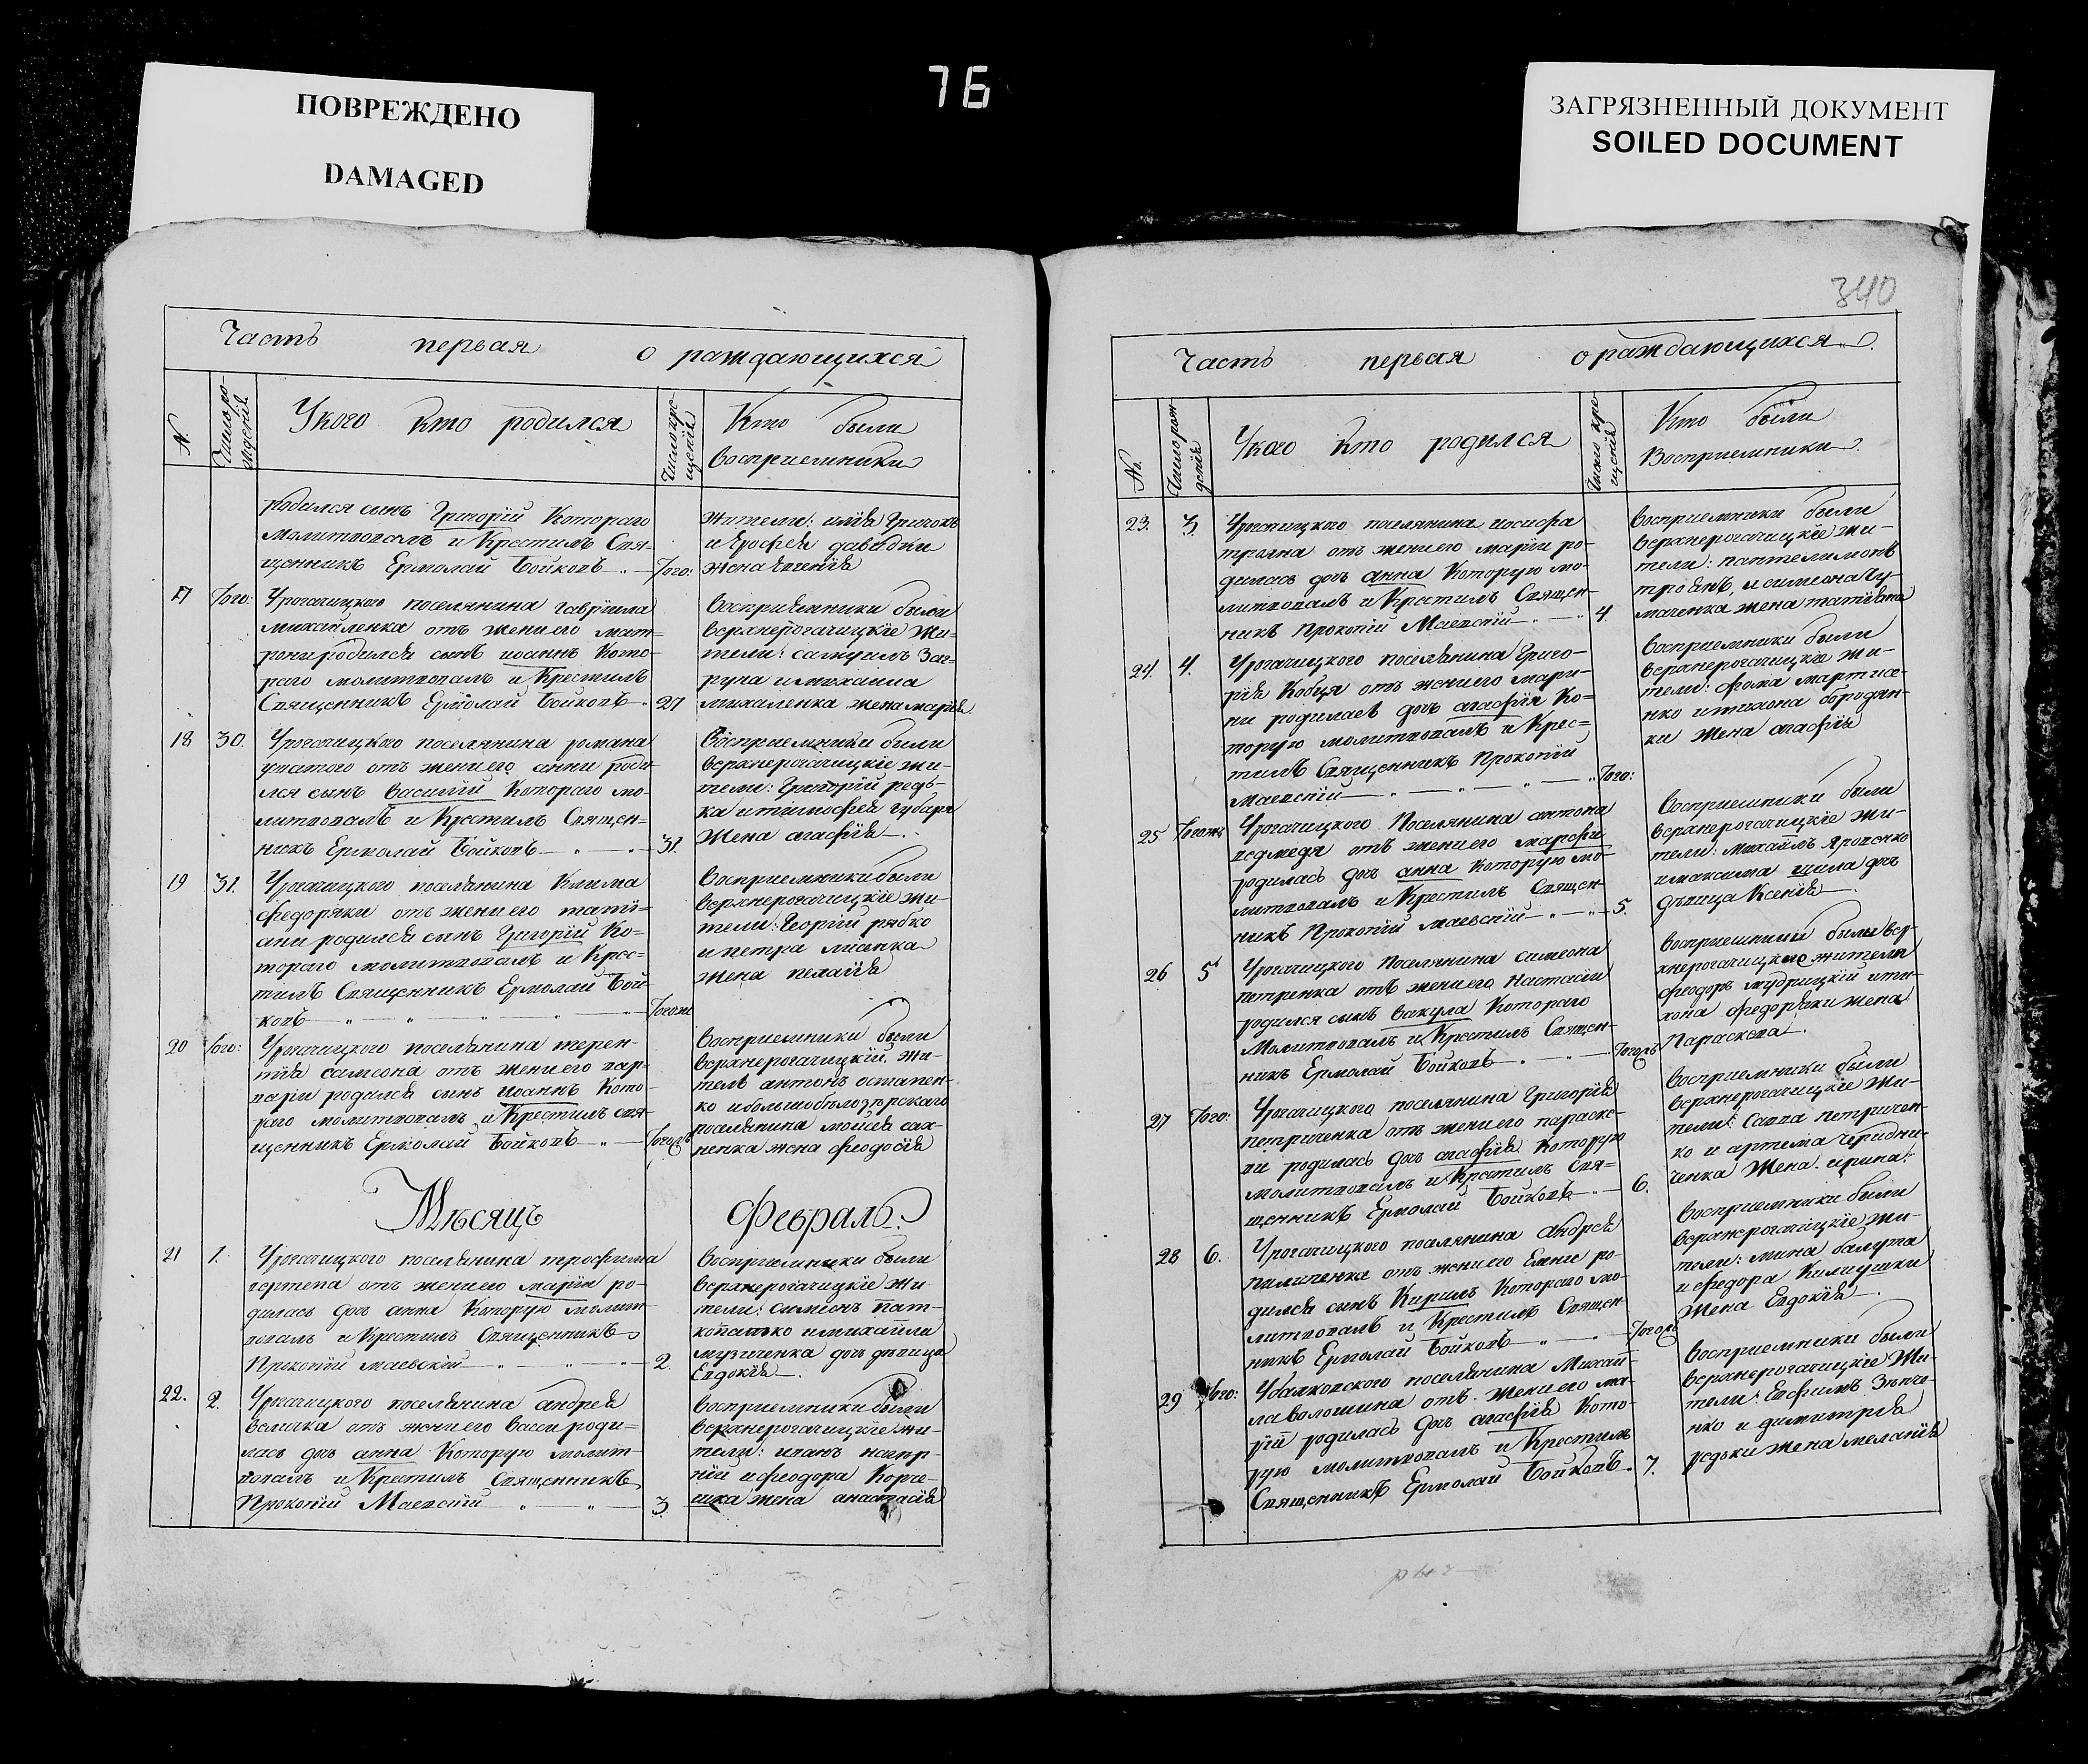 76
ПОВРЕЖДЕНО
DAMAGED
ЗАГРЯЗНЕННЫЙ ДОКУМЕНТ
SOILED DOCUMENT
Часть первая о раждающихся
N
Число рождения
У кого кто родился
Число крещения
Кто были
восприемники
родился сынъ Григорій Котораго
молитвовалъ и Крестилъ Свя=
щенникъ Ермолай Бойковъ Того:
жители:
жена Евгенія
17 Того: Урогачицкого поселянина гавріила
михайленка отъ жены его мат=
роны родился сынъ иоаннъ Кото=
раго молитвовалъ и Крестилъ
Священникъ Ермолай Бойковъ 27
восприемники были
верхнерогачицкіе жи=
тели: самуилъ Заг=
руча и михаила
михаленка жена марія
18 30. Урогачицкого поселянина романа
отъ жены его анни роди
лся сынъ Василій Котораго мо=
литвовалъ и Крестилъ Священ=
никъ Ермолай Бойковъ 31.
Восприемники были
верхнерогачицкіе жи=
тели: Григорій редь=
ка и тимофея губаря
жена агафія
19 31. Урогачицкого поселянина Клима
федоряки отъ жены его тати=
ани родился сынъ Григорій Ко=
тораго молитвовалъ и Крес=
тилъ Священникъ Ермолай Бой
ковъ Тогоже
восприемники были
верхнерогачицкіе жи=
тели: Георгій рябко
и петра лисенка
жена пелагія
20 Того: Урогачицкого поселянина терен=
тія самсона отъ жены его вар=
вари родился сынъ иоаннъ Кото=
раго молитвовалъ и Крестилъ свя=
щенникъ Ермолай Бойковъ Тогожъ
восприемники были
верхнерогачицкій жи=
тель антонъ остапен=
ко и большобѣлозѣрскаго
поселянина мойсея сах=
ненка жена феодосія
Мѣсяцъ Февраль.
21 1. Урогачицкого поселянина трофима
вертепа отъ жены его маріи ро=
дилась дочь анна Которую молит=
вовалъ и Крестилъ Священникъ
Прокопій маевскій 2.
восприемники были
верхнерогачицкіе жи
тели: симеонъ пат=
копатько и михаила
музиченка дочь дѣвица
Евдокія
22. 2. Урогачицкого поселянина андрея
величка отъ жены его васси роди=
лась дочь анна Которую молит=
вовалъ и Крестилъ Священникъ
Прокопій Маевскій 3
восприемники были
верхнерогачицкіе жи=
тели: иванъ
и феодора Корне=
жена анастасія
340
Часть первая о раждающихся
No.
Число рождения
У каго кто родился
Число крещения
Кто были
Восприемники
23. 3. Урогачицкого поселянина иосифа
трояна отъ жены его маріи ро=
дилась дочь анна Которую мо=
литвовалъ и Крестилъ Священ=
никъ Прокопій Маевскій 4.
восприемники были
верхнерогачицкіе жи=
тели: пантелимонъ
троянъ, и симеона гу=
маченка жена татіана
24. 4. Урогачицкого поселянина Григо=
рія Кобця отъ жены его мари=
ни родилась дочь агафія Ко=
торую молитвовалъ и Крес=
тилъ Священникъ Прокопій
Маевскій Того:
восприемники были
верхнерогачицкіе жи=
тели: фома мартисе=
нко и тихона бородян=
ки жена агафія
25 Тогожъ Урогачицкого Поселянина антона
ведмедя отъ жены его марфи
родилась дочь анна Которую мо=
литвовалъ и Крестилъ Священ=
никъ Прокопій маевскій 5.
восприемники были
верхнерогачицкіе жи=
тели: Михаилъ Яровенко
и максима шила дочь
дѣвица Ксенія
26 5 Урогачицкого Поселянина симеона
петренка отъ жены его Настасіи
родился сынъ вакула Котораго
Молитвовалъ и Крестилъ Священ=
никъ Ермолай Бойковъ Тогожъ
восприемники были вер=
хнерогачицкие жители
феодоръ мудрицкій и ти=
хона федоряки жена
Параскева
27 Того: Урогачицкого поселянина Григорія
петриченка отъ жены его параске=
ви родилась дочь агафія Которую
молитвовалъ и Крестилъ Свя=
щенникъ Ермолай Бойковъ 6.
восприемники были
верхнерогачицкіе жи=
тели: Савва петричен=
ко и артема Чередни=
ченка Жена ирина.
28 6. Урогачицкого поселянина Андрея
пилипенка отъ жены его Ганни ро=
дился сынъ Кирилъ Котораго мо=
литвовалъ и Крестилъ Священ
никъ Ермолай Бойковъ Тогожъ
восприемники были
верхнерогачицкіе жи=
тели: мина балута
и федора Килиушки
жена Евдокія
29 Того: Убалковского поселянина Михай=
ла волошина отъ жены его ма=
ріи родилась дочь агафія Кото=
рую молитвовалъ и Крестилъ
Священникъ Ермолай Бойковъ 7.
восприемники были
верхнерогачицкіе жи=
тели: Евфимъ Зѣнче=
нко и димитрія
редьки жена меланія